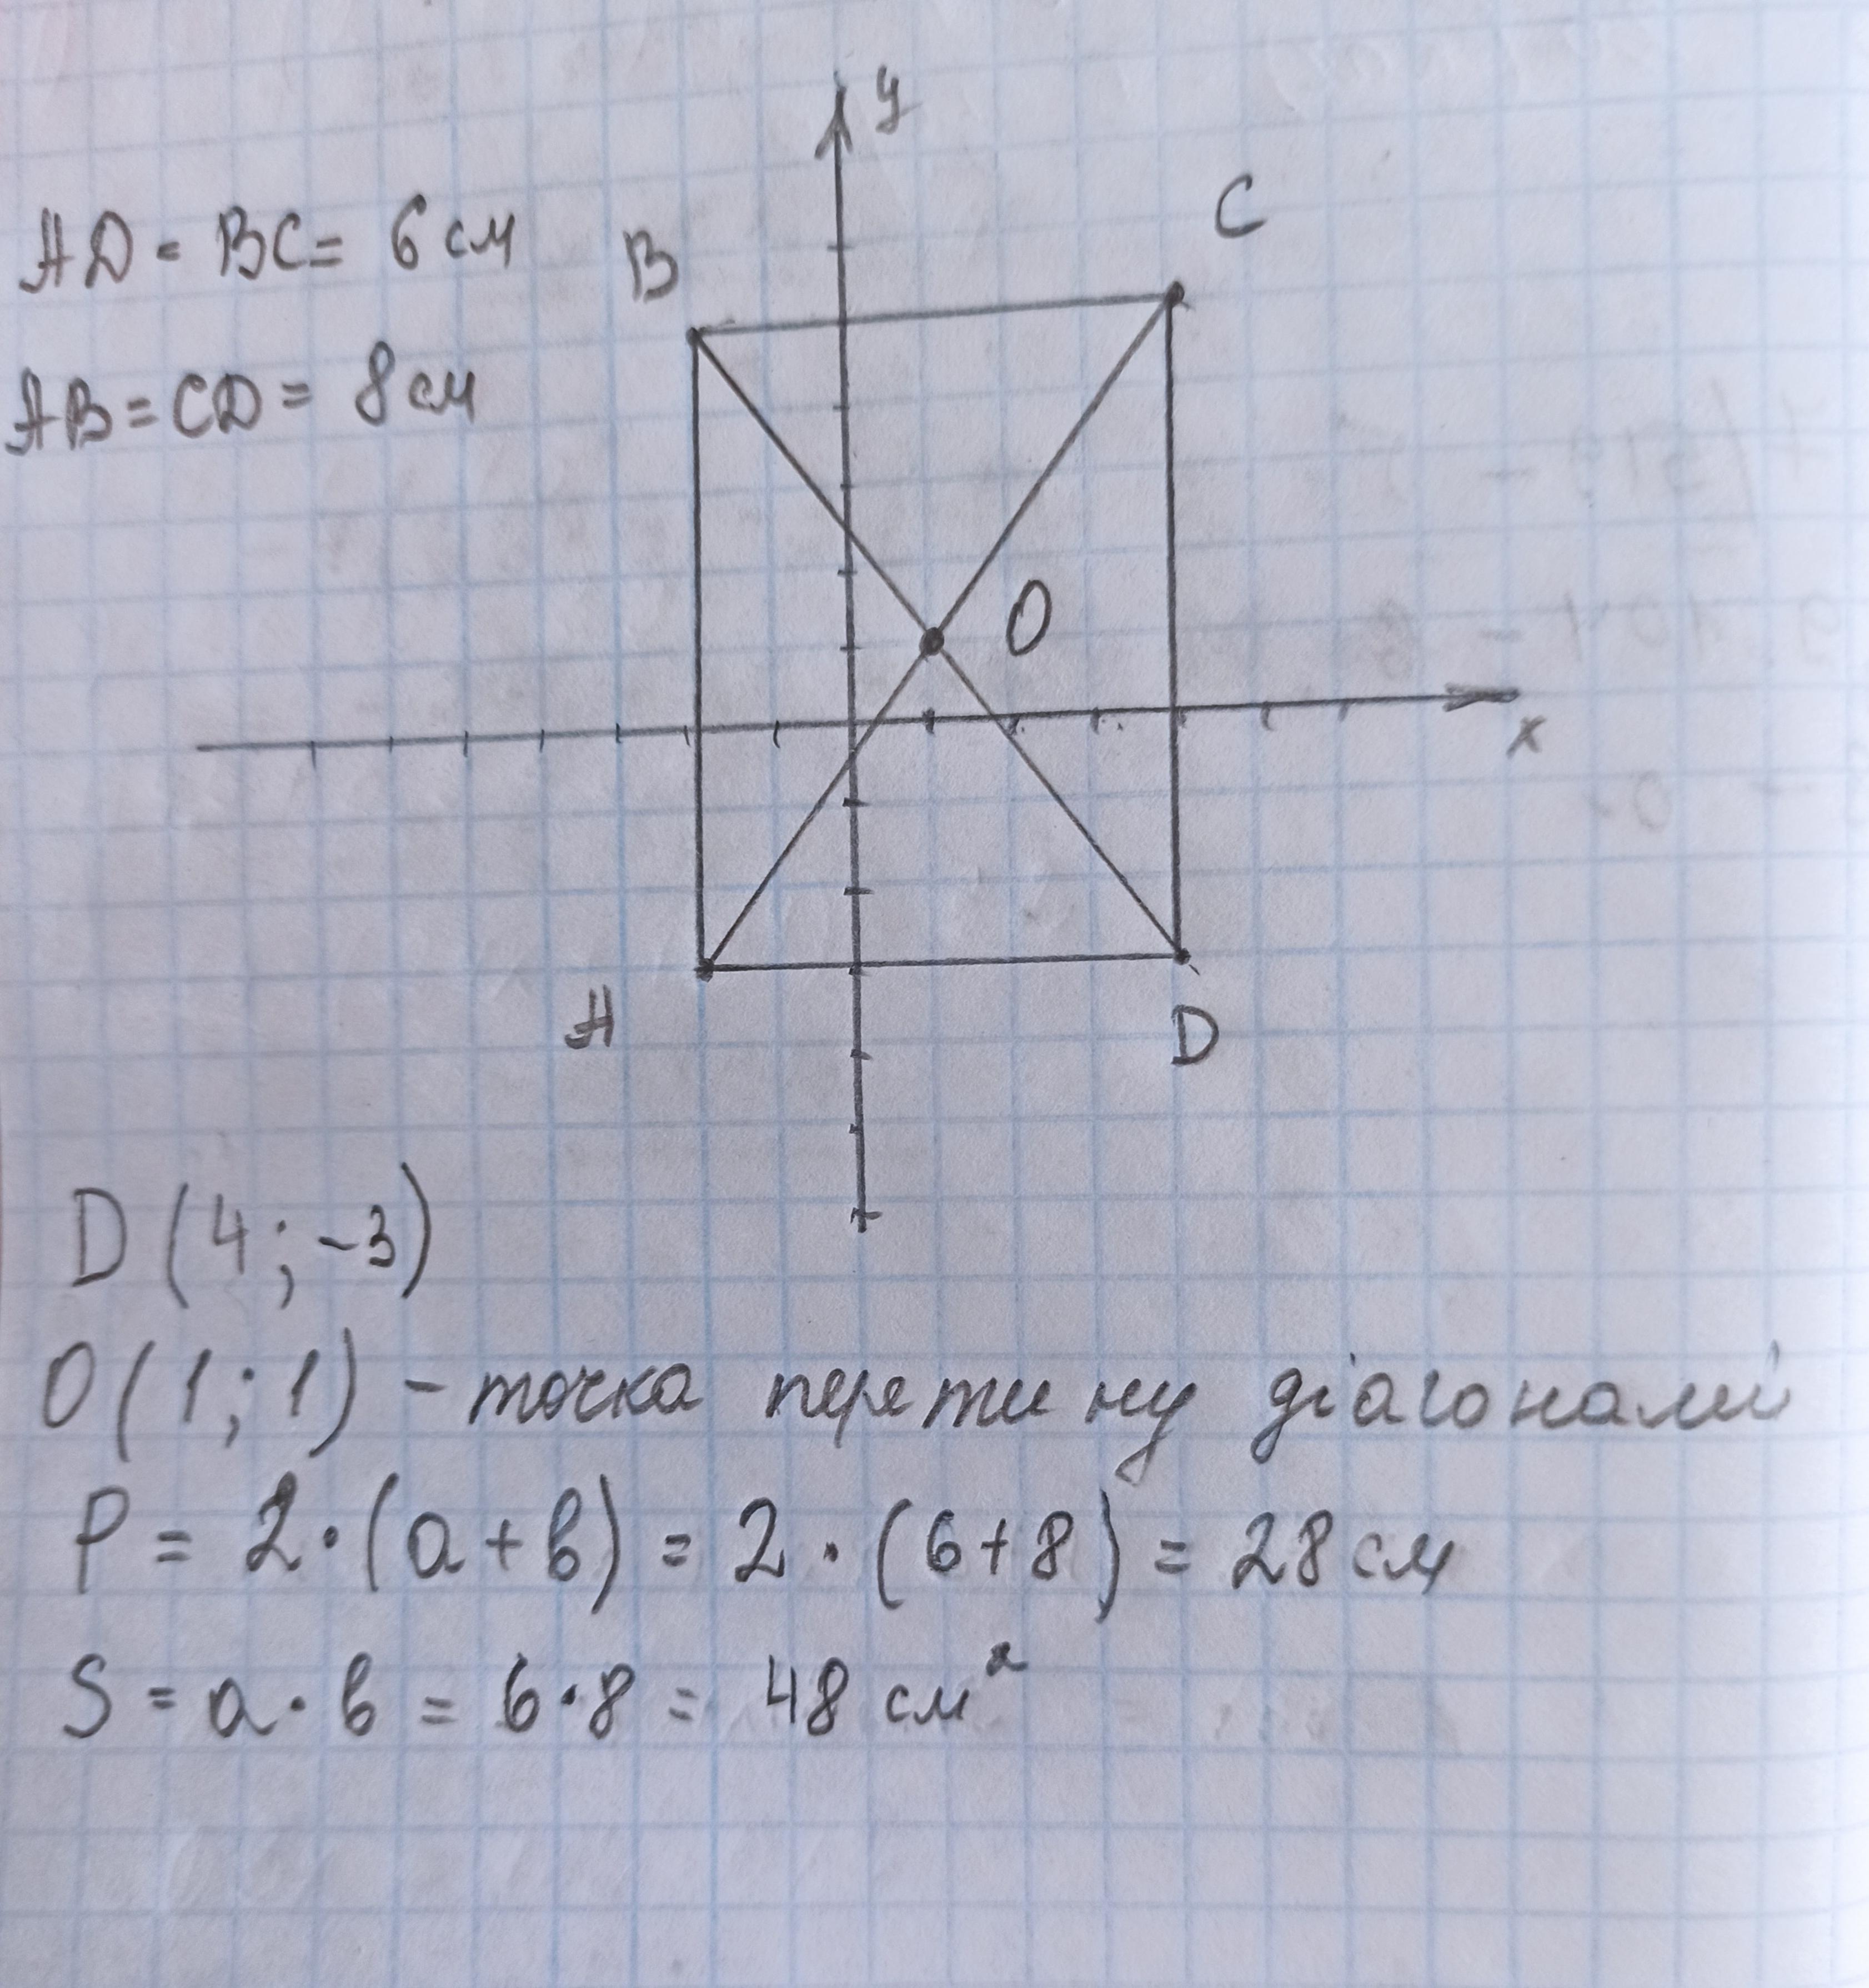 y
C
B
AD = BC = 6 см
AB = CD = 8 см
O
x
A
D
D (4 ; -3)
O (1 ; 1) - точка перетину діагоналей
P = 2 · (a + b) = 2 · (6 + 8) = 28 см
S = a · b = 6 · 8 = 48 см²